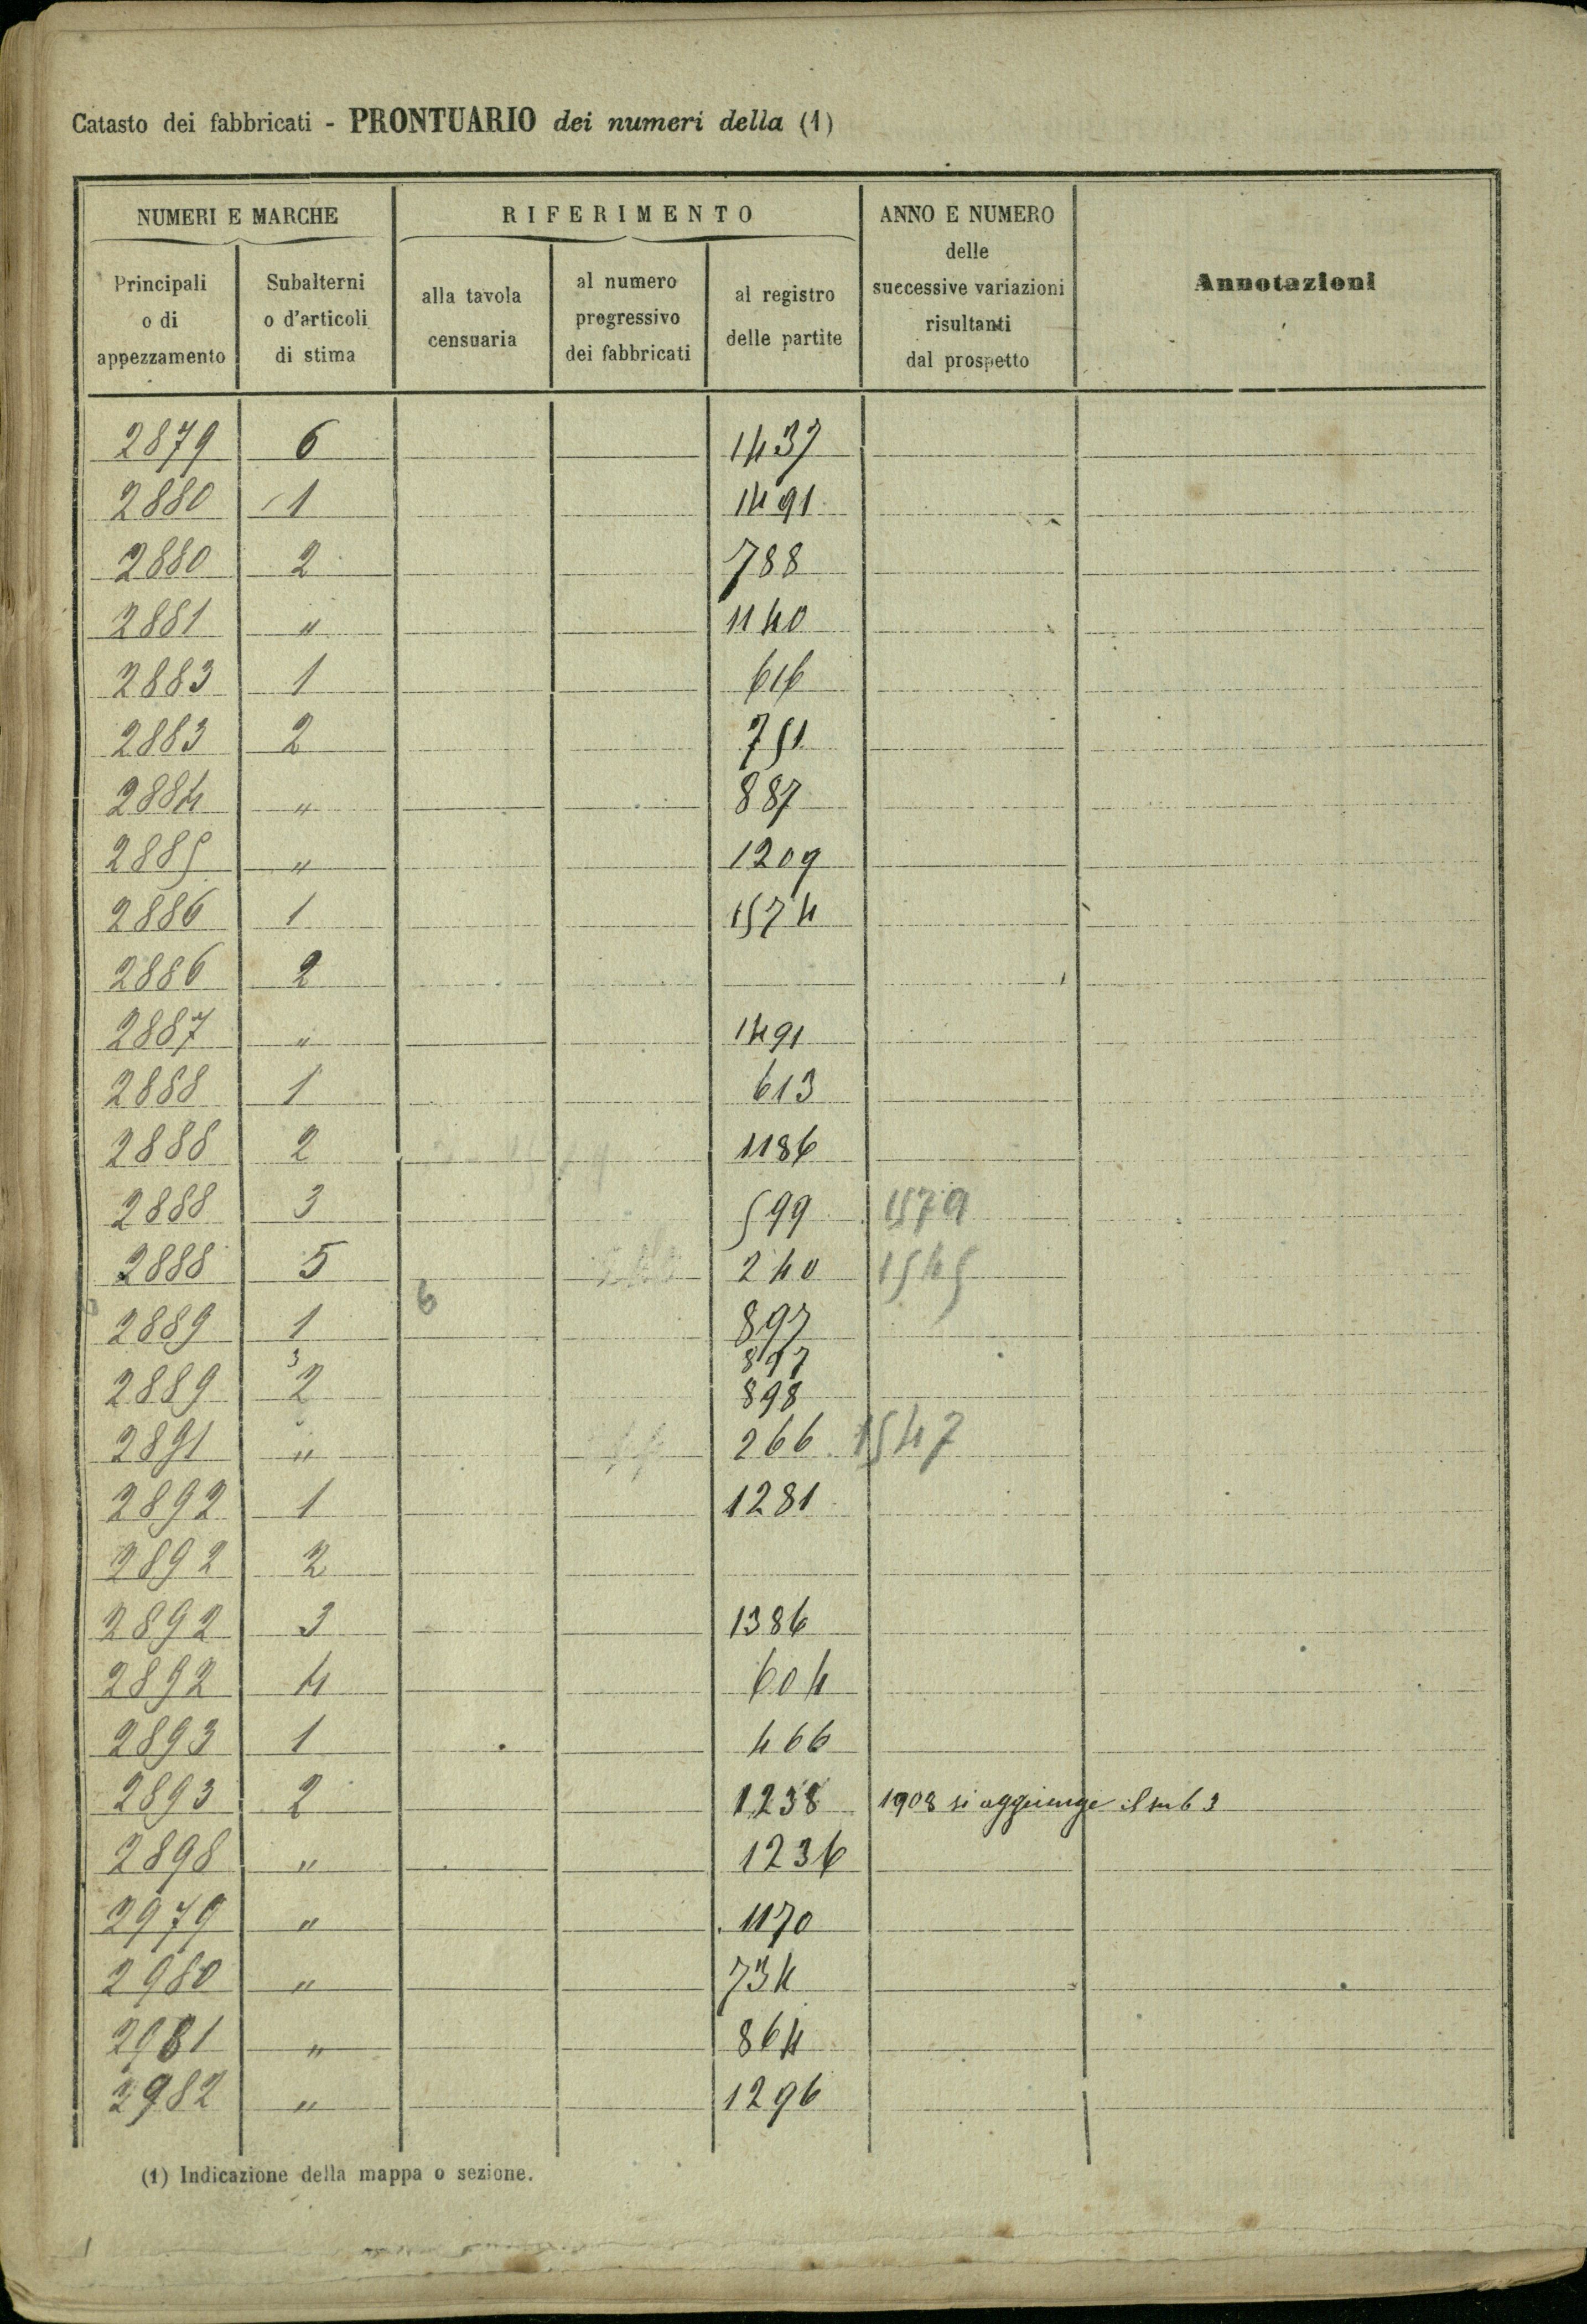 Catasto dei fabbricati - PRONTUARIO dei numeri della (1)
NUMERI E MARCHE
RIFERIMENTO
ANNO E NUMERO
delle
successive variazioni
risultanti
dal prospetto
Annotazioni
Principali
o di
appezzamento
Subalterni
o d'articoli
di stima
alla tavola
censuaria
al numero
progressivo
dei fabbricati
al registro
delle partite
2879 6 1437
2880 1 1491
2880 2 788
2881 " 1140
2883 1 616
2883 2 751
2884 " 887
2885 " 1209
2886 1 1574
2886 2
2887 " 1491
2888 1 613
2888 2 1186
2888 3 599 1579
2888 5 240 1545
6
2889 1 897
3 897
2889 2 898
2891 " 266 1547
2892 1 1281
2892 2
2892 3 1386
2892 4 604
2893 1 466
2893 2 1238 1908 si aggiunge il sub 3
2898 " 1236
2979 " 1170
2980 " 734
2981 " 864
2982 " 1296
(1) Indicazione della mappa o sezione.